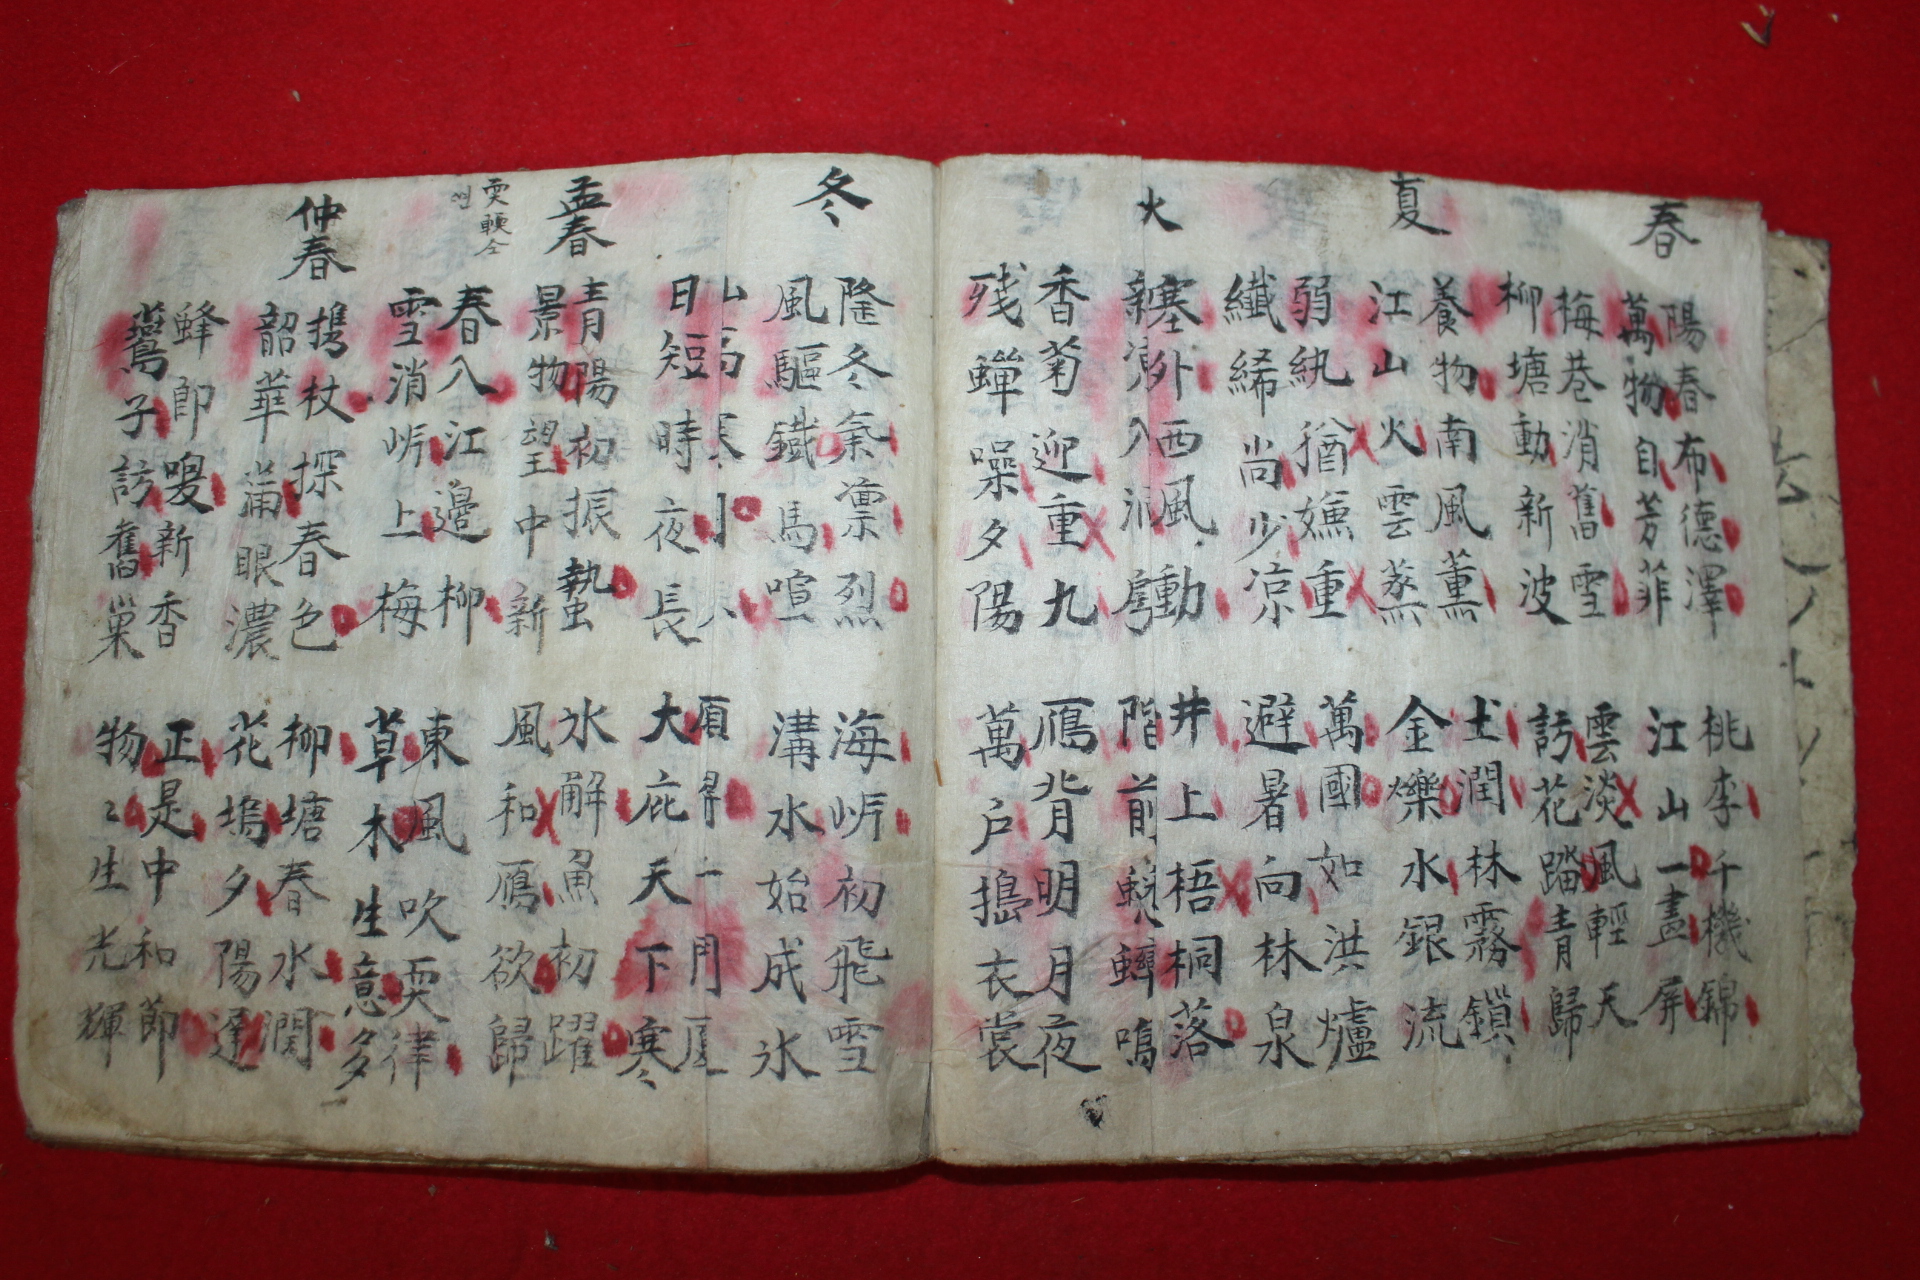 春
陽春布德澤
萬物自芳菲
桃李千機錦
江山一畫屏
梅巷消舊雪
柳塘動新波
雲淡風輕天
訪花踏青歸
夏
養物南風薫
江山火雲蒸
土潤林霧鎖
金爍水銀流
弱紈猶嫌重
纖絺尚少凉
萬國如洪爐
避暑向林泉
火
塞外西風動
新凉入
井上梧桐落
階前蟬鳴
香菊迎重九
残蟬噪夕陽
鴈背明月夜
萬户搗衣裳
冬
隆冬氣凛烈
風驅鐵馬喧
海岍初飛雪
溝水始成氷
山高寒
日短時夜長
一
大庇天下寒
孟春
青陽初振蟄
景物望中新
氷解魚初躍
風和鴈欲歸
春入江邉柳
雪消岍上梅
東風吹耎律
草木生意多
仲春
携杖探春色
韶華滿眼濃
柳塘春水潤
花塢夕陽遲
蜂卽嗅新香
鷰子訪舊巢
正是中和節
物〻生光輝